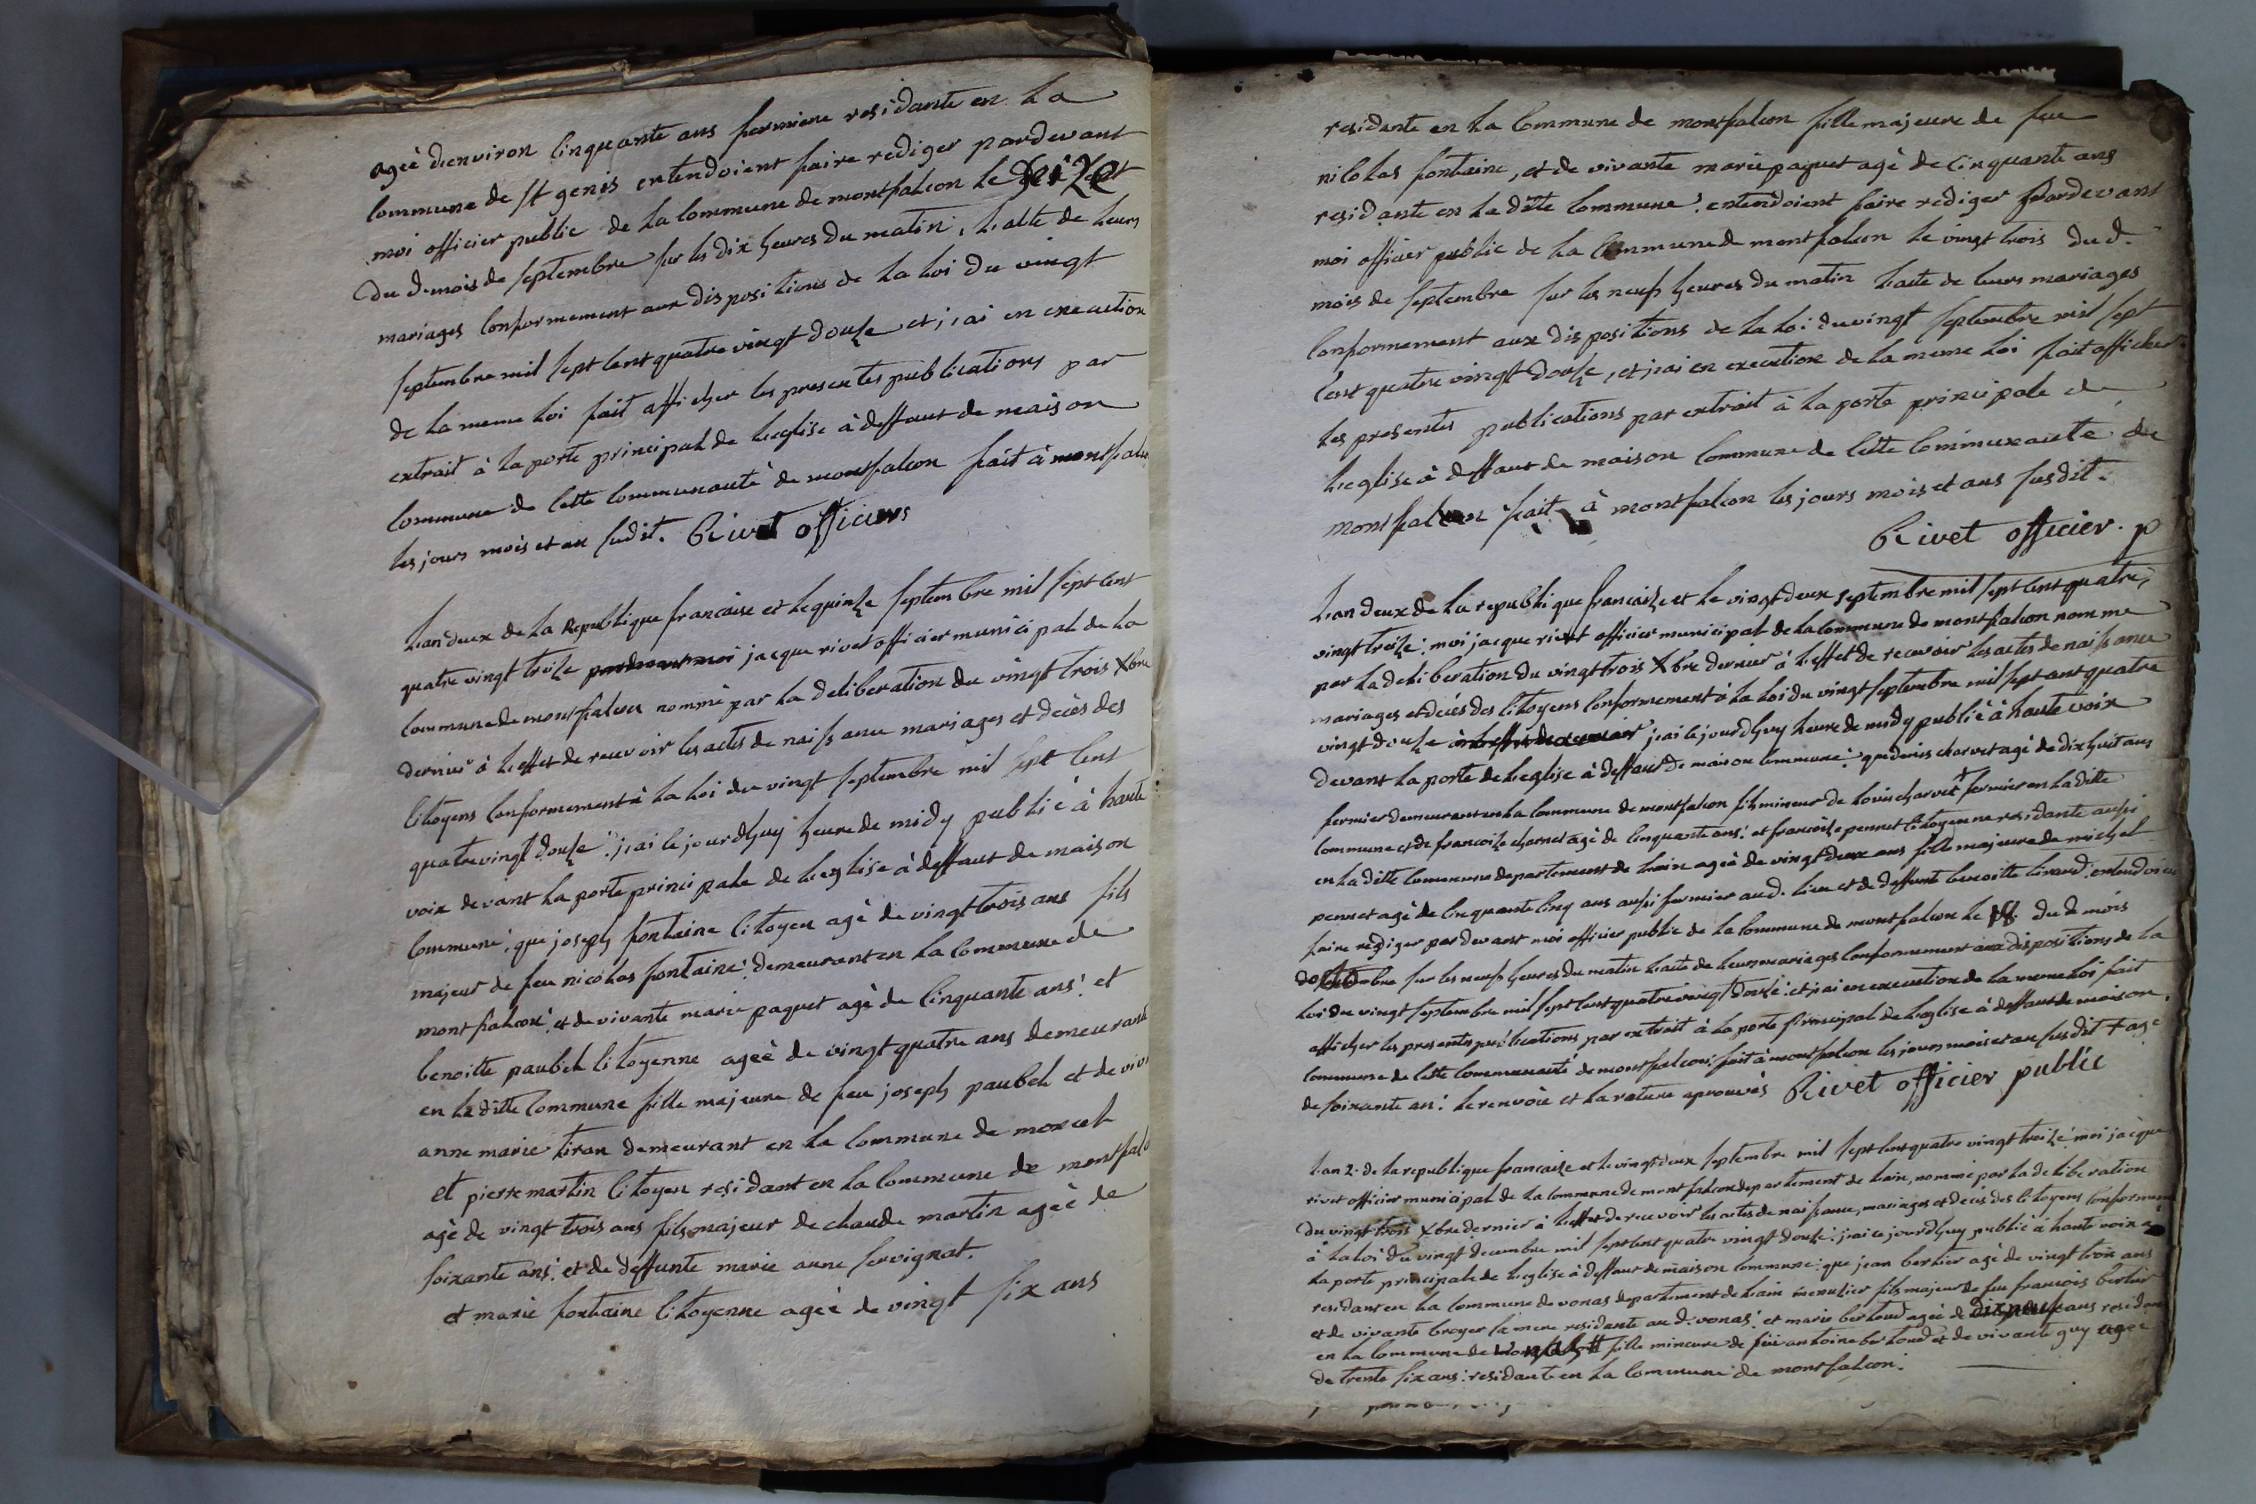 ageè d'environ cinquante ans fermiere residante en La
commune de St genis entendoient faire rediger pardevant
moi officier public de La commune de montfalcon Le seize
du d. mois de septembre sur les dix heures du matin, L'acte de Leurs
mariages conformement aux dispositions de La Loi du vingt
septembre mil sept cent quatre vingt douze et j'ai en execution
de La meme Loi fait afficher les presentes publications par
extrait à La porte principal de L'eglise à deffaut de maison
commune de cette communauté de montfalcon fait à montfalcon
les jours mois et an sudit. Rivet officiers
L'an deux de La Republique francaise et Le quinze septembre mil sept cent
quatre vingt treize pardevant moi jacque rivet officier municipal de La
commune de montfalcon nommé par La deliberation du vingt trois Xbre
dernier à L'effet de recevoir les actes de naissance mariages et décès des
citoyens conformement à La Loi du vingt septembre mil sept cent
quatrevingt douze: j'ai le jourdhuy heure de midy publié à haute
voix devant La porte principale de L'eglise à deffaut de maison
commune: que joseph fontaine citoyen agè de vingt trois ans fils
majeur de feu nicolas fontaine: demeurant en La commune de
montfalcon: et de vivante marie paquet agè de cinquante ans: et
benoitte paubel citoyenne ageè de vingt quatre ans demeurant
en La ditte commune fille majeure de feu joseph paubel et de viv
anne marie tiran demeurant en La commune de moncel
et pierre martin citoyen residant en La commune de montfalc
agè de vingt trois ans fils majeur de claude martin ageè de
soixante ans: et de deffunte marie anne servignat.
et marie fontaine citoyenne ageè de vingt six ans
residante en La commune de montfalcon fille majeure de feu
nicolas fontaine, et de vivante marie paquet agè de cinquante ans
residante en La dite commune: entendoient faire rediger pardevant
moi officier public de La commune de montfalcon Le vingt trois du d.
mois de septembre sur les neufs heures du matin L'acte de leurs mariages
conformement aux dispositions de La Loi du vingt septembre mil sept
cent quatre vingt douze, et j'ai en execution de la meme Loi fait afficher
Les presentes publications par extrait à La porte principale de
L'eglise à deffaut de maison commune de cette communauté de
montfalcon fait à montfalcon les jours mois et ans susdit.
Rivet officier. p
L'an deux de La republique francaize et Le vingt deux septembre mil sept cent quatre
vingt treize: moi jacque rivet officier municipal de La commune de montfalcon nommé
par La deliberation du vingt trois Xbre dernier à L'effet de recevoir les actes de naissance
mariages et décès des citoyens conformement à La Loi du vingt septembre mil sept cent quatre
vingt douze j'ai le jourdhuy heure de midy publié à haute voix
devant La porte de L'eglise à deffaut de maison commune: que denis charvet agè de dix huit ans
fermier demeurant en La commune de montfalcon fils mineur de Louis charvet + fermier en La ditte
commune et de francoize charnet agè de cinquante ans: et francoize pennet citoyenne residante aussi
en La ditte commune departement de L'ain ageè de vingt deux ans fille majeure de michel
pennet agè de cinquante cinq ans aussi fermier au d. Lieu et de deffunte benoitte entendoient
faire rediger par devant moi officier public de La commune de montfalcon Le du d. mois
de sur les neufs heures du matin L'acte de Leurs mariages conformement aux dispositions de La
Loi du vingt septembre mil sept cent quatre vingt douze: et j'ai en execution de La meme Loi fait
afficher Les presentes publications par extrait à La porte principal de L'eglise à deffaut de maison
commune de cette communauté de montfalcon: fait à montfalcon les jours mois et an susdit + agè
de soixante an: Le renvoie et La rature aprouvés Rivet officier public
L'an 2. de La republique francaize et Le vingt deux septembre mil sept cent quatre vingt treize: moi jacque
rivet officier municipal de La commune de montfalcon departement de L'ain, nommé par La deliberation
du vingt trois Xbre dernier à L'effet de recevoir les actes de naissance, mariages et décès des citoyens conformement
à La Loi du vingt decembre mil sept cent quatre vingt douze: j'ai ce jourdhuy publié à haute voix à
La porte principale de L'eglise à deffaut de maison commune: que jean bertier agè de vingt trois ans
residant en La commune de vonas departement de L'ain menusier fils majeur de feu francois bertier
et de vivante broyer sa mere residante au d. vonas: et marie bertoud ageè de dix neuf ans residante
en La commune de fille mineure de feu antoine bertoud et de vivante guy ageè
de trente six ans: residante en La commune de montfalcon.